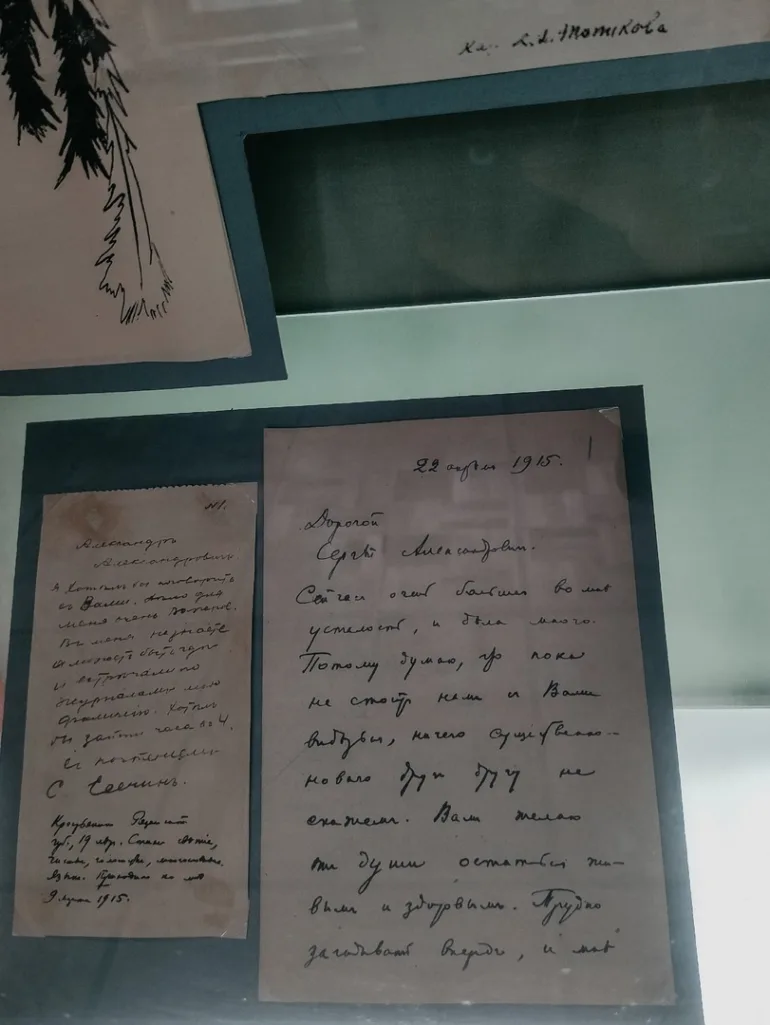 Х. А. Тотикова
№1.
Александръ
Александровичъ.
Я хотѣлъ бы поговорить
съ Вами. Дѣло для
меня очень важное.
Вы меня не знаете
а можетъ быть где
и встречали по
журналамъ мою
фамилию. Хотѣлъ
бы зайти часа въ 4.
С почтением
С Есенинъ.
Крестьянин Рязанской
губ., 19 лет. Стихи свежие,
чистые, голосистые, многословные.
Язык. Приходил ко мне
9 марта 1915.
22 апреля 1915.
Дорогой
Сергей Александрович.
Сейчас очень большая во мне
усталость, и дела много.
Потому думаю, что пока
не стоит нам с Вами
видеться, ничего существенно-
нового друг другу не
скажем. Вам желаю
от души остаться жи-
вым и здоровым. Трудно
загадывать вперед, и мне